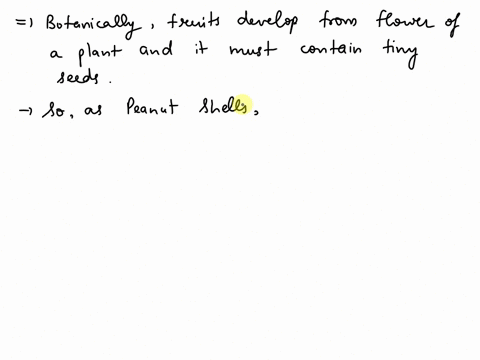 => Botanically, fruits develop from flower of
a plant and it must contain tiny
seeds.
→ So, as Peanut Shells,